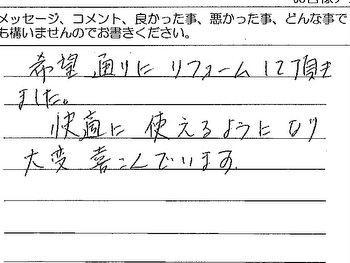 メッセージ、コメント、良かった事、悪かった事、どんな事で
も構いませんのでお書きください。
希望通りにリフォームして頂き
ました。
快適に使えるようになり
大変喜こんでいます